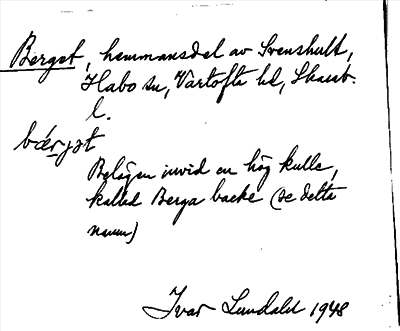 Berget, hemmansdel av Svenshult,
Habo sn, Vartofta hd, Skarab.
l.
bǽrjət
Belägen invid en hög kulle,
kallad Berga backe (se detta
namn)
Ivar Lundahl 1948